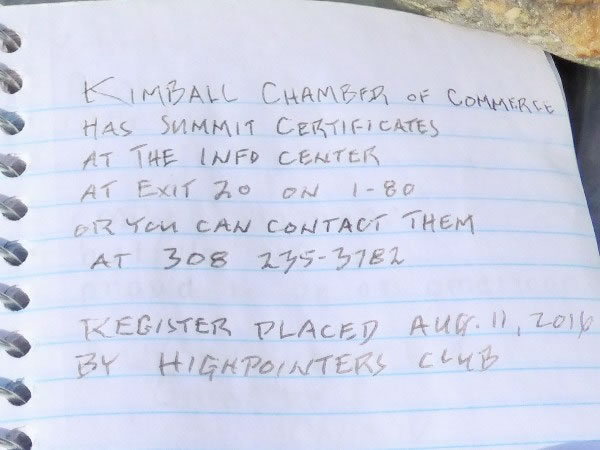 KIMBALL CHAMBER OF COMMERCE
HAS SUMMIT CERTIFICATES
AT THE INFO CENTER
AT EXIT 20 ON I-80
OR YOU CAN CONTACT THEM
AT 308 235-3782
REGISTER PLACED AUG. 11, 2016
BY HIGHPOINTERS CLUB